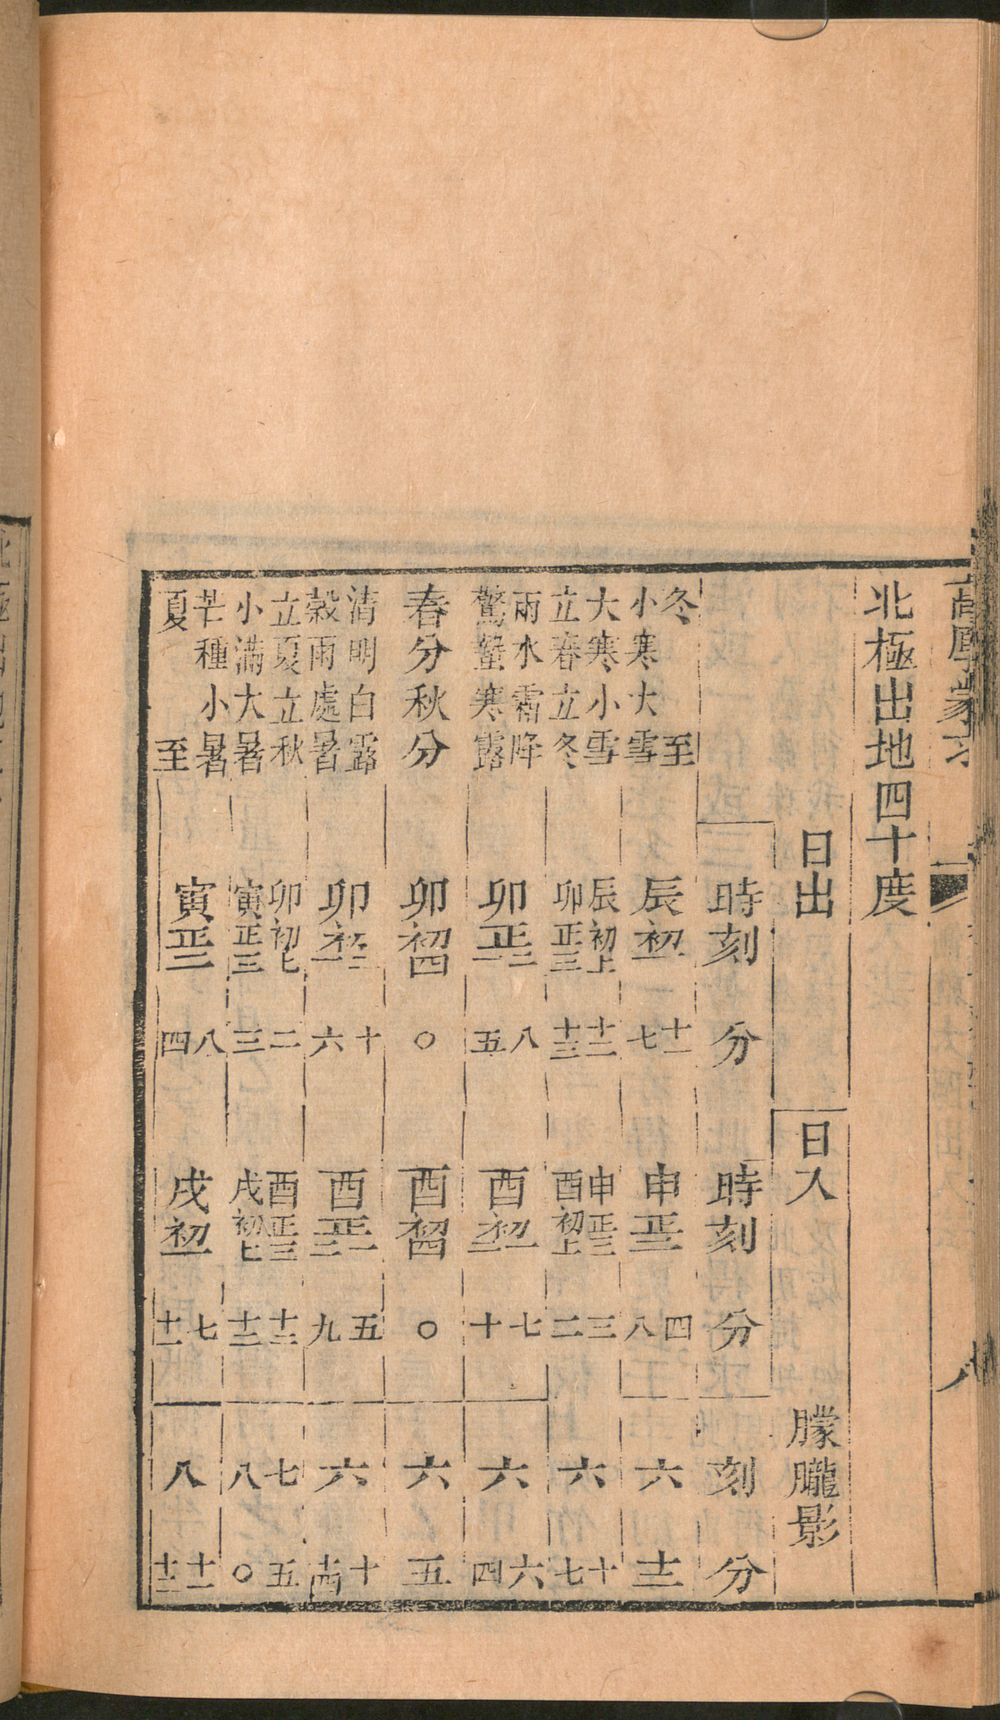 高厚蒙求
八
北極出地四十度
日出 日入 朦朧影
時刻 分 時刻 分 刻 分
冬至 辰初一 十一 申正二 四 六 十三
小寒大雪 七 八
大寒小雪 辰初上 十二 申正三 三 六 十
立春立冬 卯正三 十三 酉初上 二 七
雨水霜降 卯正二 八 酉初一 七 六 六
驚蟄寒露 一 五 二 十 四
春分秋分 卯初四 ○ 酉初四 ○ 六 五
清明白露 卯初二 十 酉正一 五 六 十
穀雨處暑 一 六 二 九 十四
立夏立秋 卯初七 二 酉正三 十三 七 五
小滿大暑 寅正三 三 戌初七 十二 八 ○
芒種小暑 寅正二 八 戌初一 七 八 十一
夏至 四 十一 十二